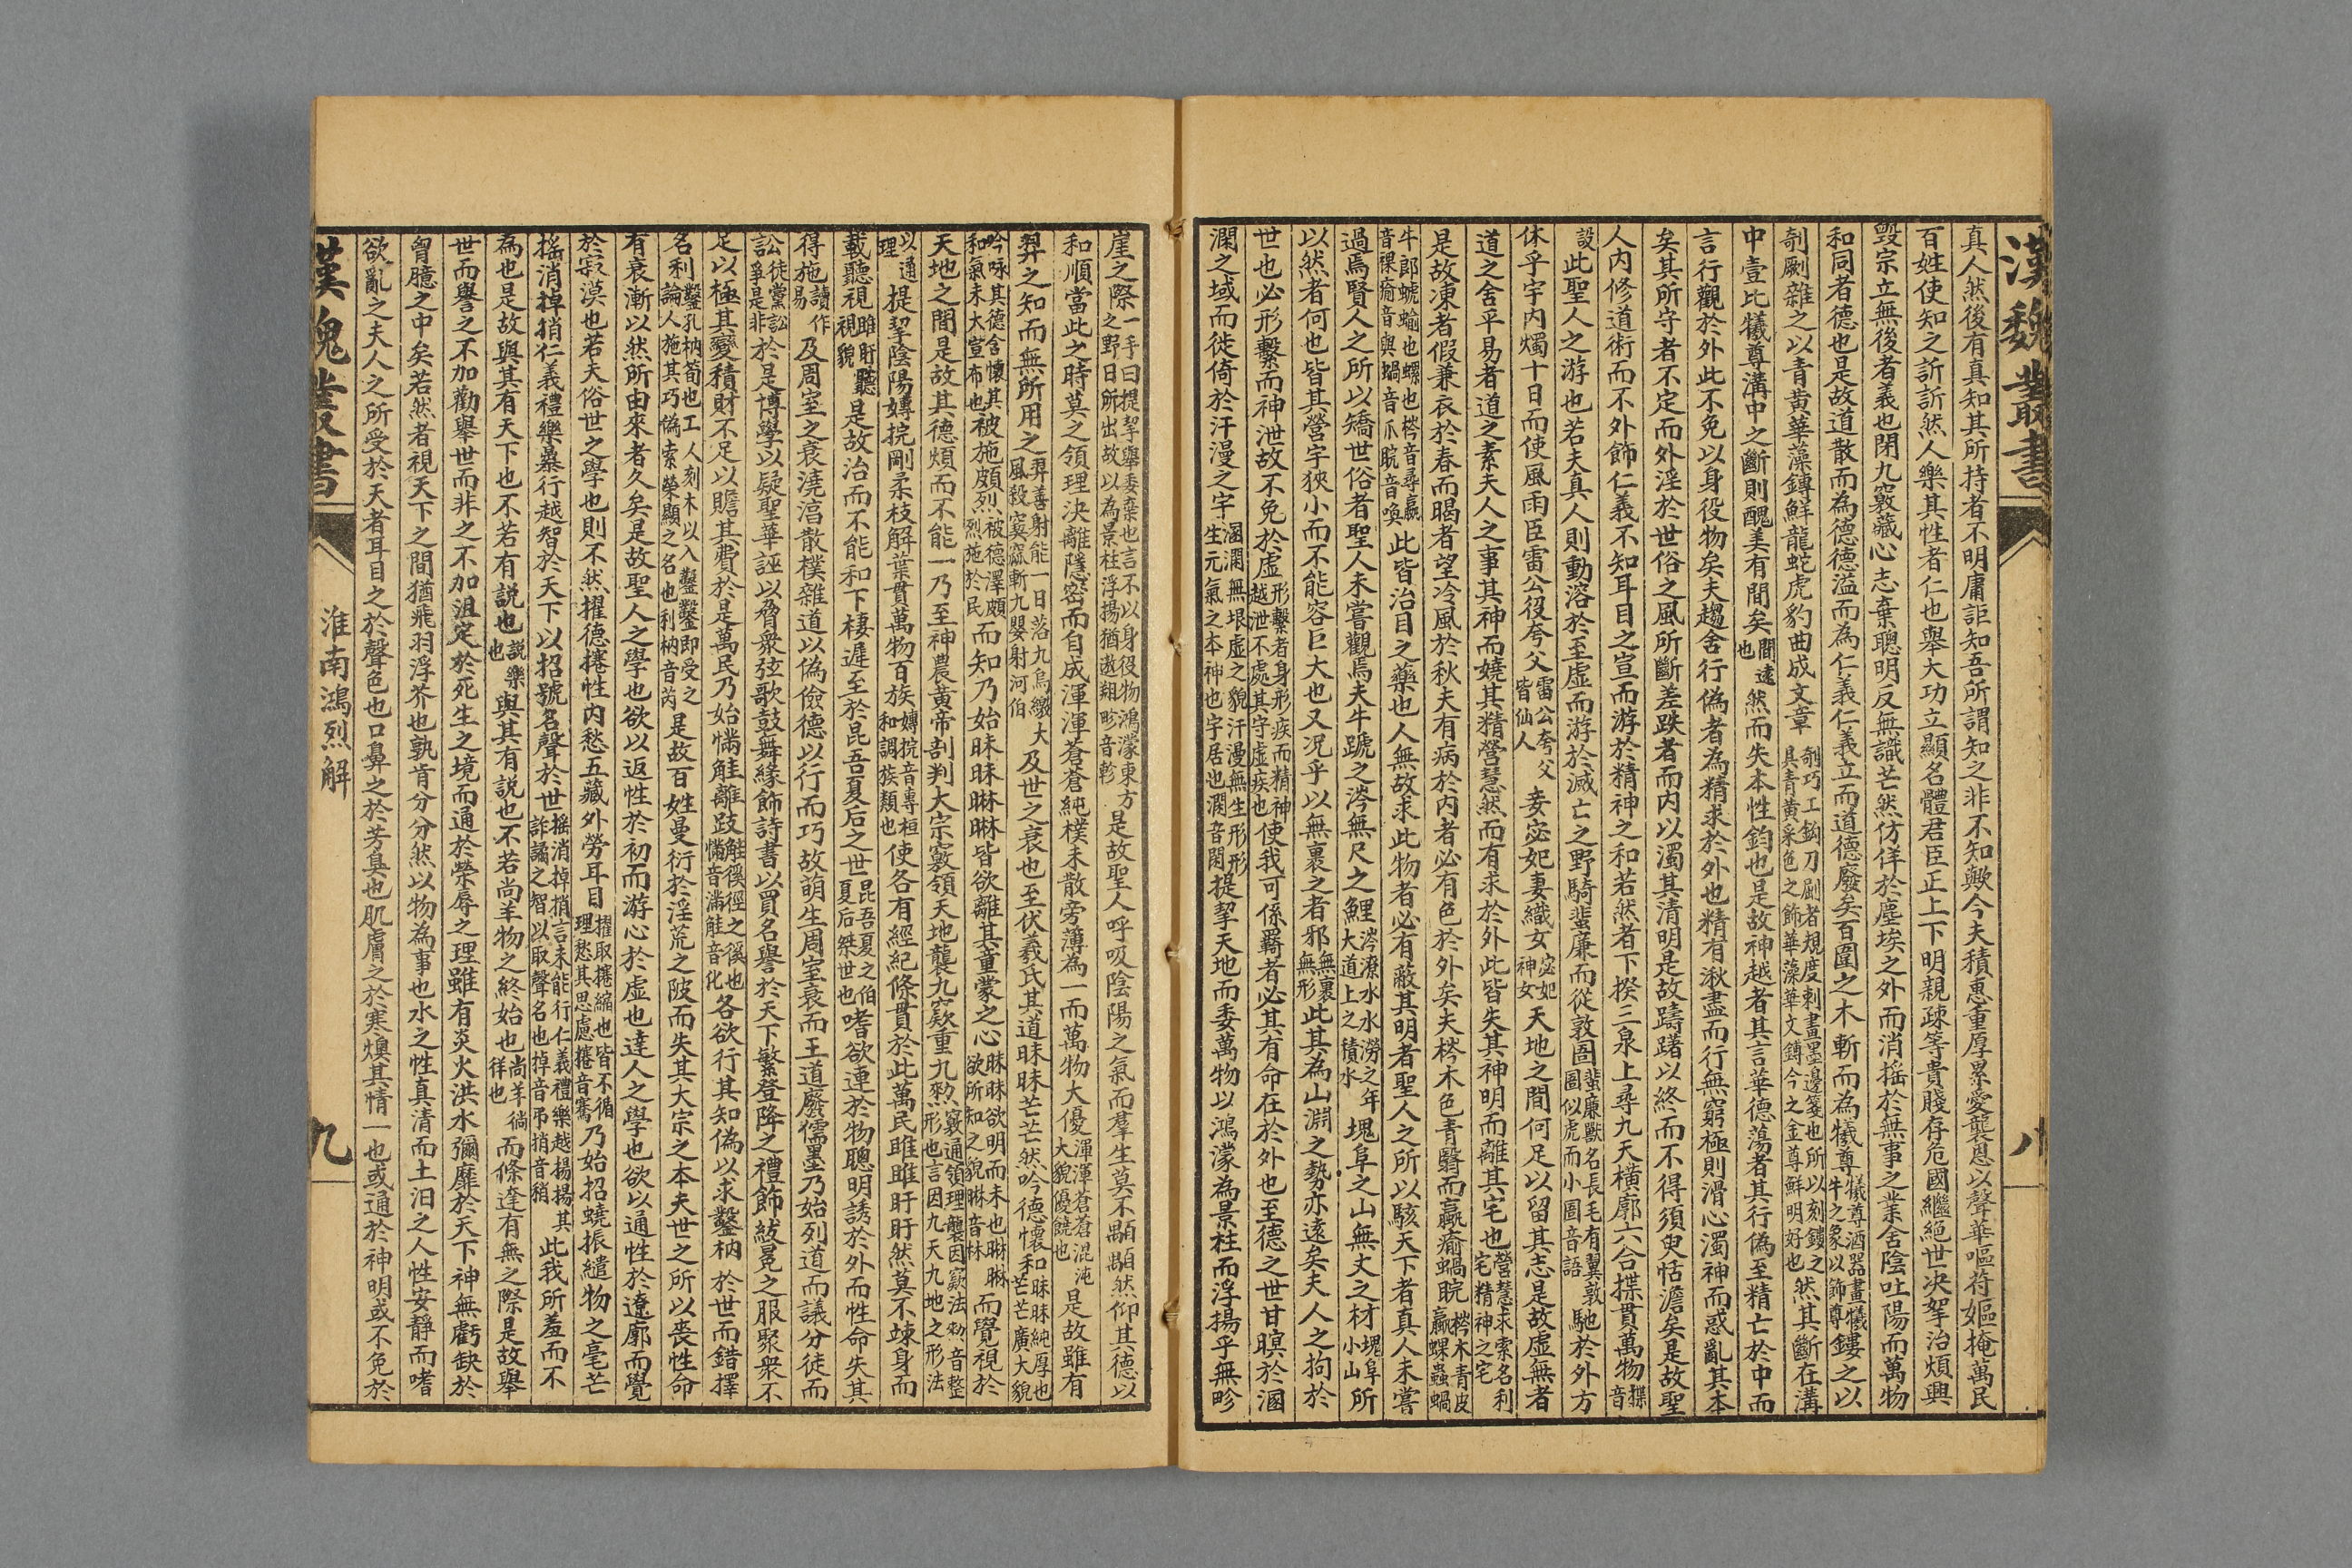 漢魏叢書
八
真人然後有真知其所持者不明庸詎知吾所謂知之非不知歟今夫積惠重厚累愛襲恩以聲華嘔苻嫗掩萬民
百姓使知之訢訢然人樂其性者仁也舉大功立顯名體君臣正上下明親疎等貴賤存危國繼絕世决挐治煩興
毀宗立無後者義也閉九竅藏心志棄聰明反無識芒然仿佯於塵埃之外而消搖於無事之業含陰吐陽而萬物
和同者德也是故道散而為德德溢而為仁義仁義立而道德廢矣百圍之木斬而為犧尊犧尊酒器畫犧牛之象以飾尊鏤之以
剞劂雜之以青黃華藻鎛鮮龍蛇虎豹曲成文章剞巧工鉤刀劂者規度刺畫墨邊箋也所以刻鏤之具青黃采色之飾華藻華文鎛今之金尊鮮明好也然其斷在溝
中壹比犧尊溝中之斷則醜美有間矣間遠也然而失本性鈞也是故神越者其言華德蕩者其行偽至精亡於中而
言行觀於外此不免以身役物矣夫趨舍行偽者為精求於外也精有湫盡而行無窮極則滑心濁神而惑亂其本
矣其所守者不定而外淫於世俗之風所斷差跌者而內以濁其清明是故躊躇以終而不得須臾恬澹矣是故聖
人內修道術而不外飾仁義不知耳目之宣而游於精神之和若然者下揆三泉上尋九天橫廓六合揲貫萬物揲音
設此聖人之游也若夫真人則動溶於至虛而游於滅亡之野騎蜚廉而從敦圄蜚廉獸名長毛有翼敦圄似虎而小圄音語馳於外方
休乎宇內燭十日而使風雨臣雷公役夸父雷公夸父皆仙人妾宓妃妻織女宓妃神女天地之間何足以留其志是故虛無者
道之舍平易者道之素夫人之事其神而嬈其精營慧然而有求於外此皆失其神明而離其宅也營慧求索名利宅精神之宅
是故凍者假兼衣於春而暍者望冷風於秋夫有病於內者必有色於外矣夫梣木色青翳而蠃瘉蝸睆梣木青皮蠃蜾蟲蝸
牛郎螔蝓也螺也梣音尋蠃音裸瘉音與蝸音爪睆音喚此皆治目之藥也人無故求此物者必有蔽其明者聖人之所以駭天下者真人未嘗
過焉賢人之所以矯世俗者聖人未嘗觀焉夫牛蹏之涔無尺之鯉涔潦水水澇之年大道上之積水塊阜之山無丈之材塊阜小山所
以然者何也皆其營宇狹小而不能容巨大也又况乎以無裹之者邪無裹無形此其為山淵之勢亦遠矣夫人之拘於
世也必形繫而神泄故不免於虛形繫者身形疾而精神越泄不處其守虛疾也使我可係羈者必其有命在於外也至德之世甘瞑於溷
瀾之域而徙倚於汗漫之宇溷瀾無垠虛之貌汗漫無生形形生元氣之本神也宇居也瀾音閑提挈天地而委萬物以鴻濛為景柱而浮揚乎無畛
崖之際一手曰提挈舉委棄也言不以身役物鴻濛東方之野日所出故以為景柱浮揚猶遨翔畛音軫是故聖人呼吸陰陽之氣而羣生莫不顒顒然仰其德以
和順當此之時莫之領理決離隱密而自成渾渾蒼蒼純樸未散旁薄為一而萬物大優渾渾蒼蒼混沌大貌優饒也是故雖有
羿之知而無所用之羿善射能一日落九烏繳大風殺窫窳斬九嬰射河伯及世之衰也至伏羲氏其道昧昧芒芒然吟德懷和昧昧純厚也芒芒廣大貌
吟咏其德含懷其和氣未大宣布也被施頗烈被德澤頗烈施於民而知乃始昧昧㖼㖼皆欲離其童蒙之心昧昧欲明而未也㖼㖼欲所知之貌㖼音林而覺視於
天地之間是故其德煩而不能一乃至神農黃帝剖判大宗竅領天地襲九窾重九㙬竅通領理襲因窾法㙬音整形也言因九天九地之形法
以通理提挈陰陽嫥捖剛柔枝解葉貫萬物百族嫥捖音專桓和調族類也使各有經紀條貫於此萬民睢睢盱盱然莫不竦身而
載聽視睢盱聽視貌是故治而不能和下棲遲至於昆吾夏后之世昆吾夏之伯夏后桀世也嗜欲連於物聰明誘於外而性命失其
得施讀作易及周室之衰澆淳散樸雜道以偽儉德以行而巧故萌生周室衰而王道廢儒墨乃始列道而議分徒而
訟徒黨訟爭是非於是博學以疑聖華誣以脅衆弦歌鼓舞緣飾詩書以買名譽於天下繁登降之禮飾紱冕之服聚衆不
足以極其變積財不足以贍其費於是萬民乃始慲觟離跂觟徯徑之徯也慲音滿觟音化各欲行其知偽以求鑿枘於世而錯擇
名利鑿孔枘筍也工人刻木以入鑿鑿即受之論人施其巧偽索榮顯之名也利枘音芮是故百姓曼衍於淫荒之陂而失其大宗之本夫世之所以喪性命
有衰漸以然所由來者久矣是故聖人之學也欲以返性於初而游心於虛也達人之學也欲以通性於遼廓而覺
於寂漠也若夫俗世之學也則不然擢德㩴性內愁五藏外勞耳目擢取㩴縮也皆不循理愁其思慮㩴音騫乃始招蟯振繾物之毫芒
搖消掉捎仁義禮樂暴行越智於天下以招號名聲於世搖消掉捎言未能行仁義禮樂越揚揚其詐譎之智以取聲名也掉音弔捎音稍此我所羞而不
為也是故與其有天下也不若有說也說樂也與其有說也不若尚羊物之終始也尚羊徜徉也而條達有無之際是故舉
世而譽之不加勸舉世而非之不加沮定於死生之境而通於榮辱之理雖有炎火洪水彌靡於天下神無虧缺於
胷臆之中矣若然者視天下之間猶飛羽浮芥也孰肯分分然以物為事也水之性真清而土汩之人性安靜而嗜
欲亂之夫人之所受於天者耳目之於聲色也口鼻之於芳臭也肌膚之於寒燠其情一也或通於神明或不免於
漢魏叢書
淮南鴻烈解
九